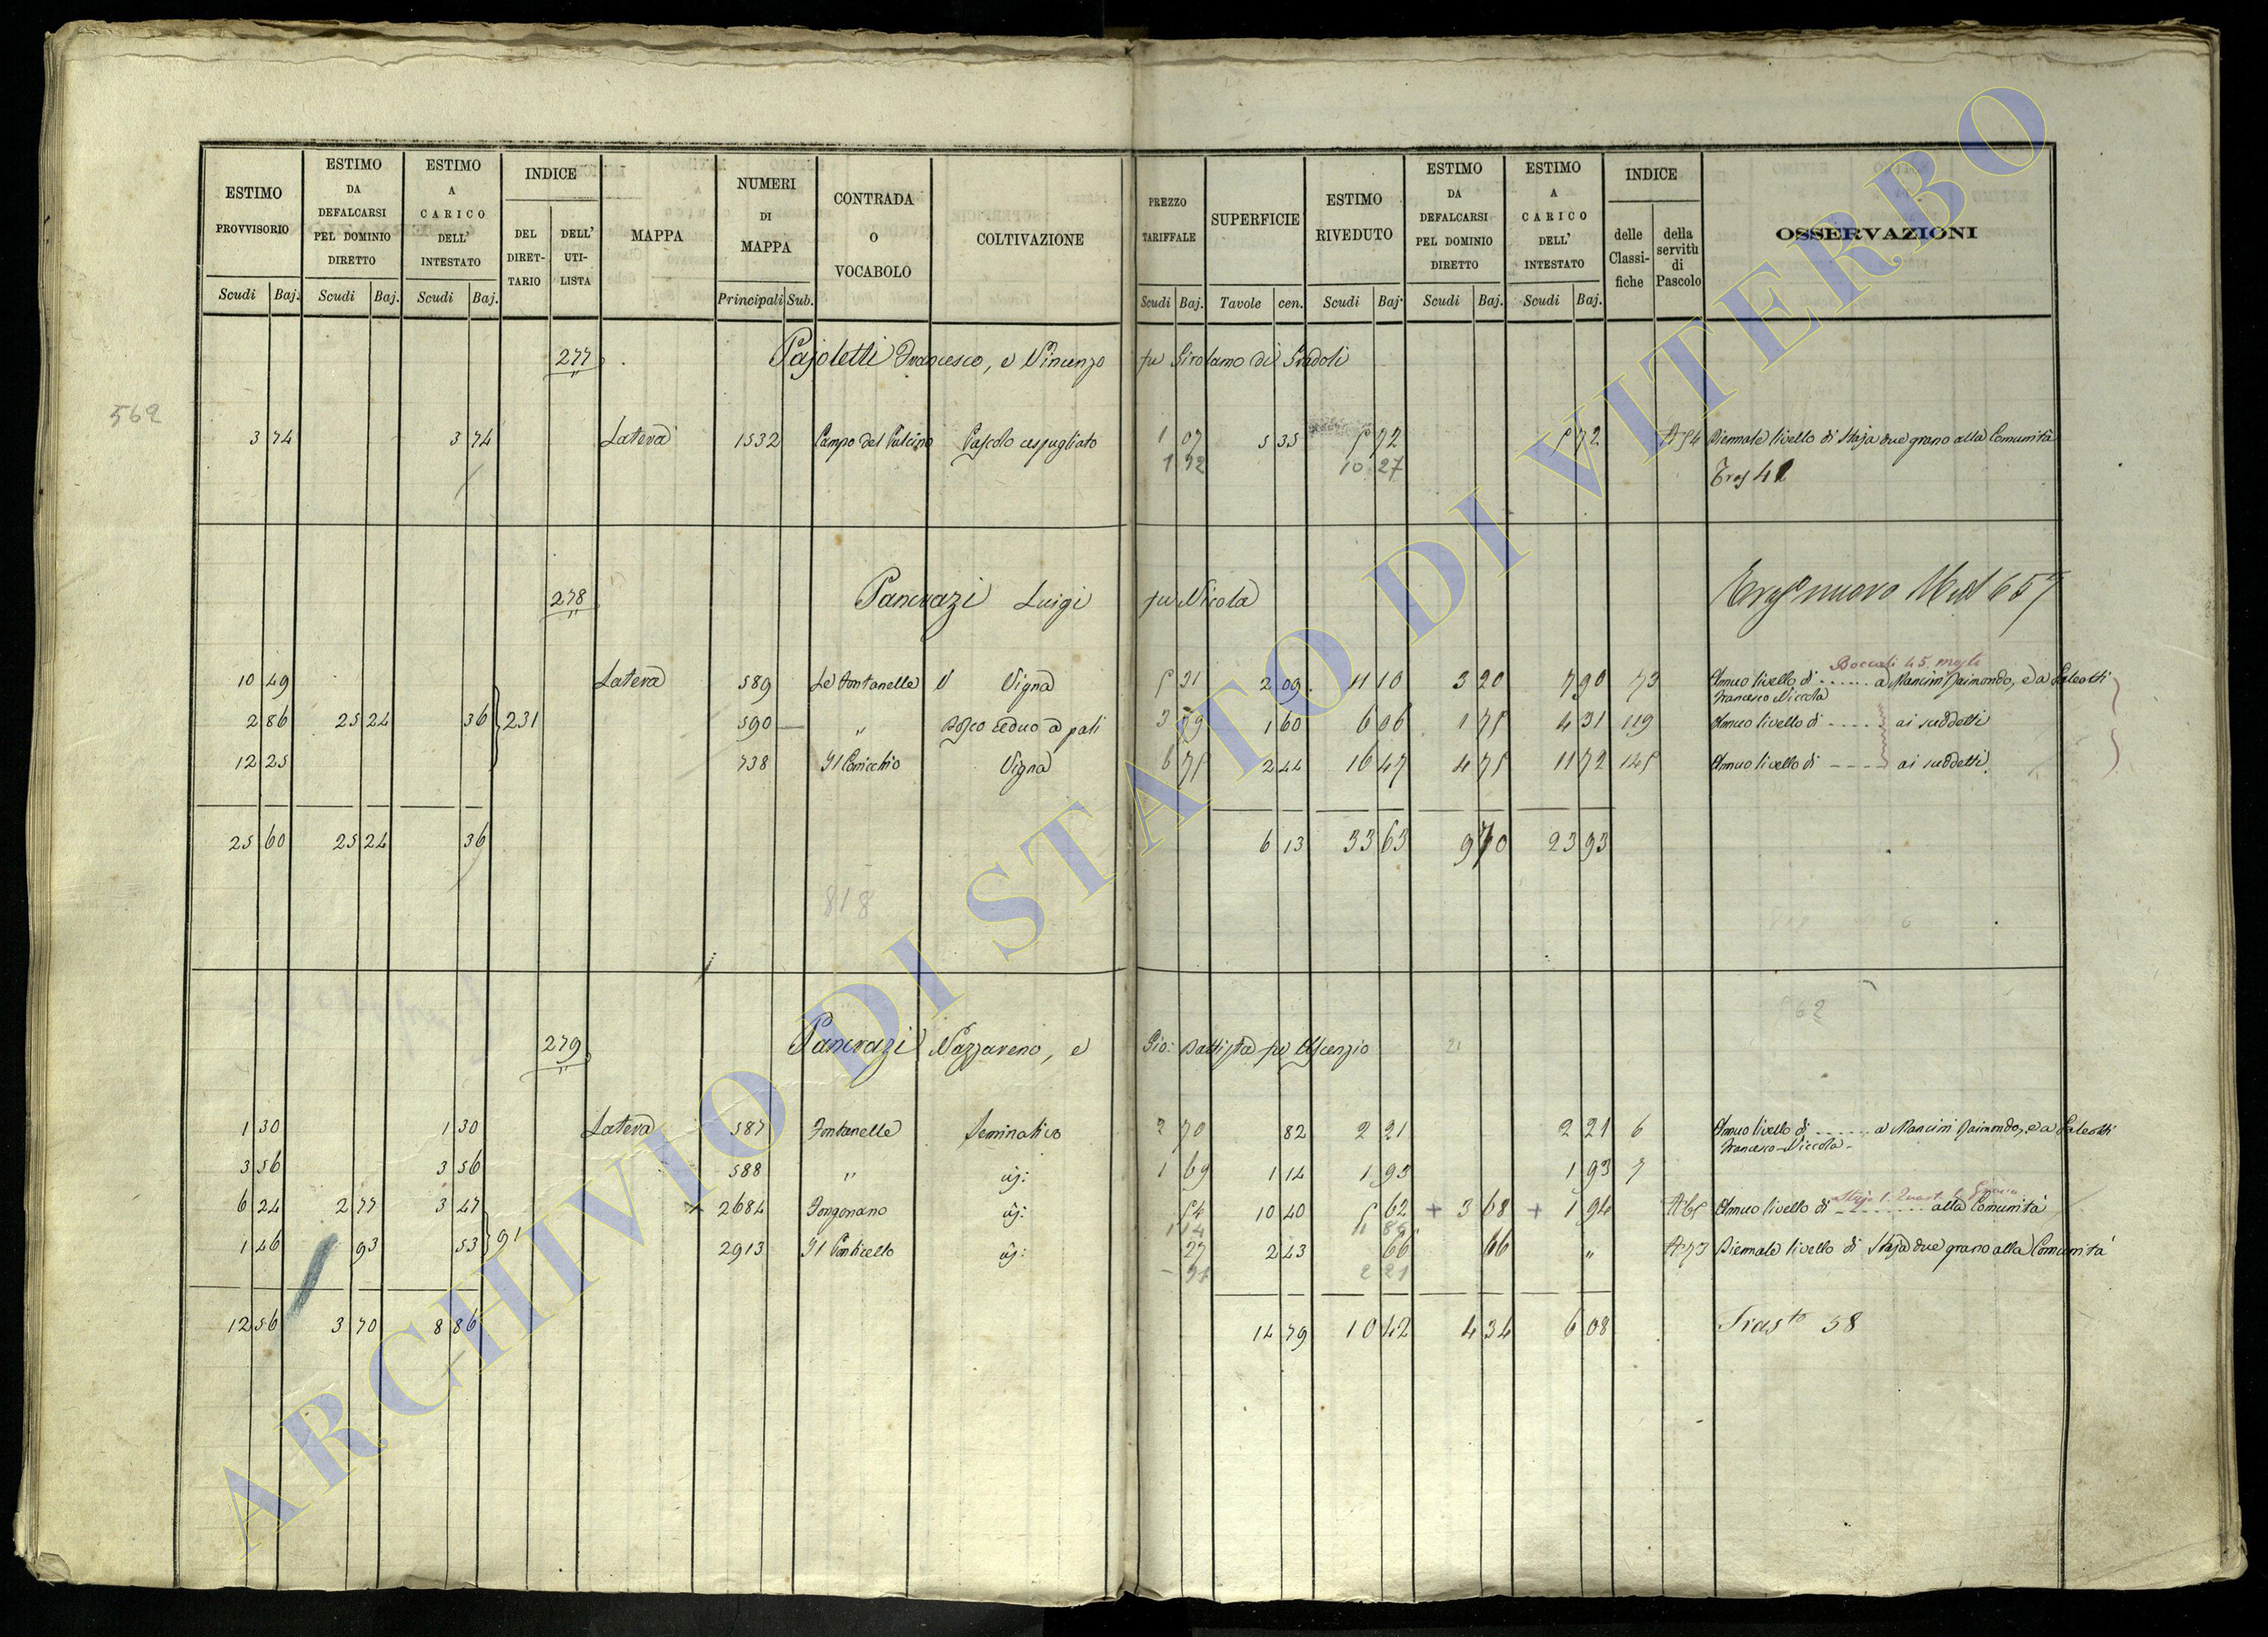 ESTIMO PROVVISORIO Scudi Baj.
ESTIMO DA DEFALCARSI PEL DOMINIO DIRETTO Scudi Baj.
ESTIMO A CARICO DELL' INTESTATO Scudi Baj.
INDICE DEL DIRET-TARIO DELL' UTI-LISTA
MAPPA
NUMERI DI MAPPA Principali Sub.
CONTRADA O VOCABOLO
COLTIVAZIONE
PREZZO TARIFFALE Scudi Baj.
SUPERFICIE Tavole cen.
ESTIMO RIVEDUTO Scudi Baj.
ESTIMO DA DEFALCARSI PEL DOMINIO DIRETTO Scudi Baj.
ESTIMO A CARICO DELL' INTESTATO Scudi Baj.
INDICE delle Classi-fiche della servitù di Pascolo
OSSERVAZIONI
277 Pajoletti Francesco, e Vincenzo fu Girolamo di Gradoli
562
3 74 3 74 Latera 1532 Campo del Pulcino Pascolo cespugliato 1 07 5 35 5 72 5 72 A 54 Biennale livello di Staja due grano alla Comunità
1 92 10 27
278 Pancrazi Luigi fu Nicola
657
Boccali 45
10 49 Latera 589 Le Fontanelle Vigna 5 31 2 09 11 10 3 20 7 90 73 Annuo livello di ...... a Mancini Raimondo, e a Galeotti
Francesco Niccola
2 86 25 24 36 231 590 " Bosco ceduo a pali 3 79 1 60 6 06 1 75 4 31 119 Annuo livello di ..... ai suddetti
12 25 738 Il Vigna 6 75 2 44 16 47 4 75 11 72 145 Annuo livello di ---- ai suddetti
25 60 25 24 36 6 13 33 63 9 70 23 93
818
562
279 Pancrazi Nazzareno, e Gio: Battista fu Ascenzio 21
1 30 1 30 Latera 587 Fontanelle Seminativo 2 70 82 2 21 2 21 6 Annuo livello di ...... a Mancini Raimondo, e a Galeotti
Francesco Niccola
3 56 3 56 588 " id: 1 69 1 14 1 93 1 93 7
6 24 2 77 3 47 91 2684 id: 54 10 40 5 62 + 3 68 + 1 94 A 65 Annuo livello di ........ alla Comunità
1 14 11 86
1 46 93 53 2913 Il Ponticello id: 27 2 43 66 66 " A 73 Biennale livello di Staja due grano alla Comunità
2 21
12 56 3 70 8 86 14 79 10 42 4 34 6 08 Trasto 58
ARCHIVIO DI STATO DI VITERBO